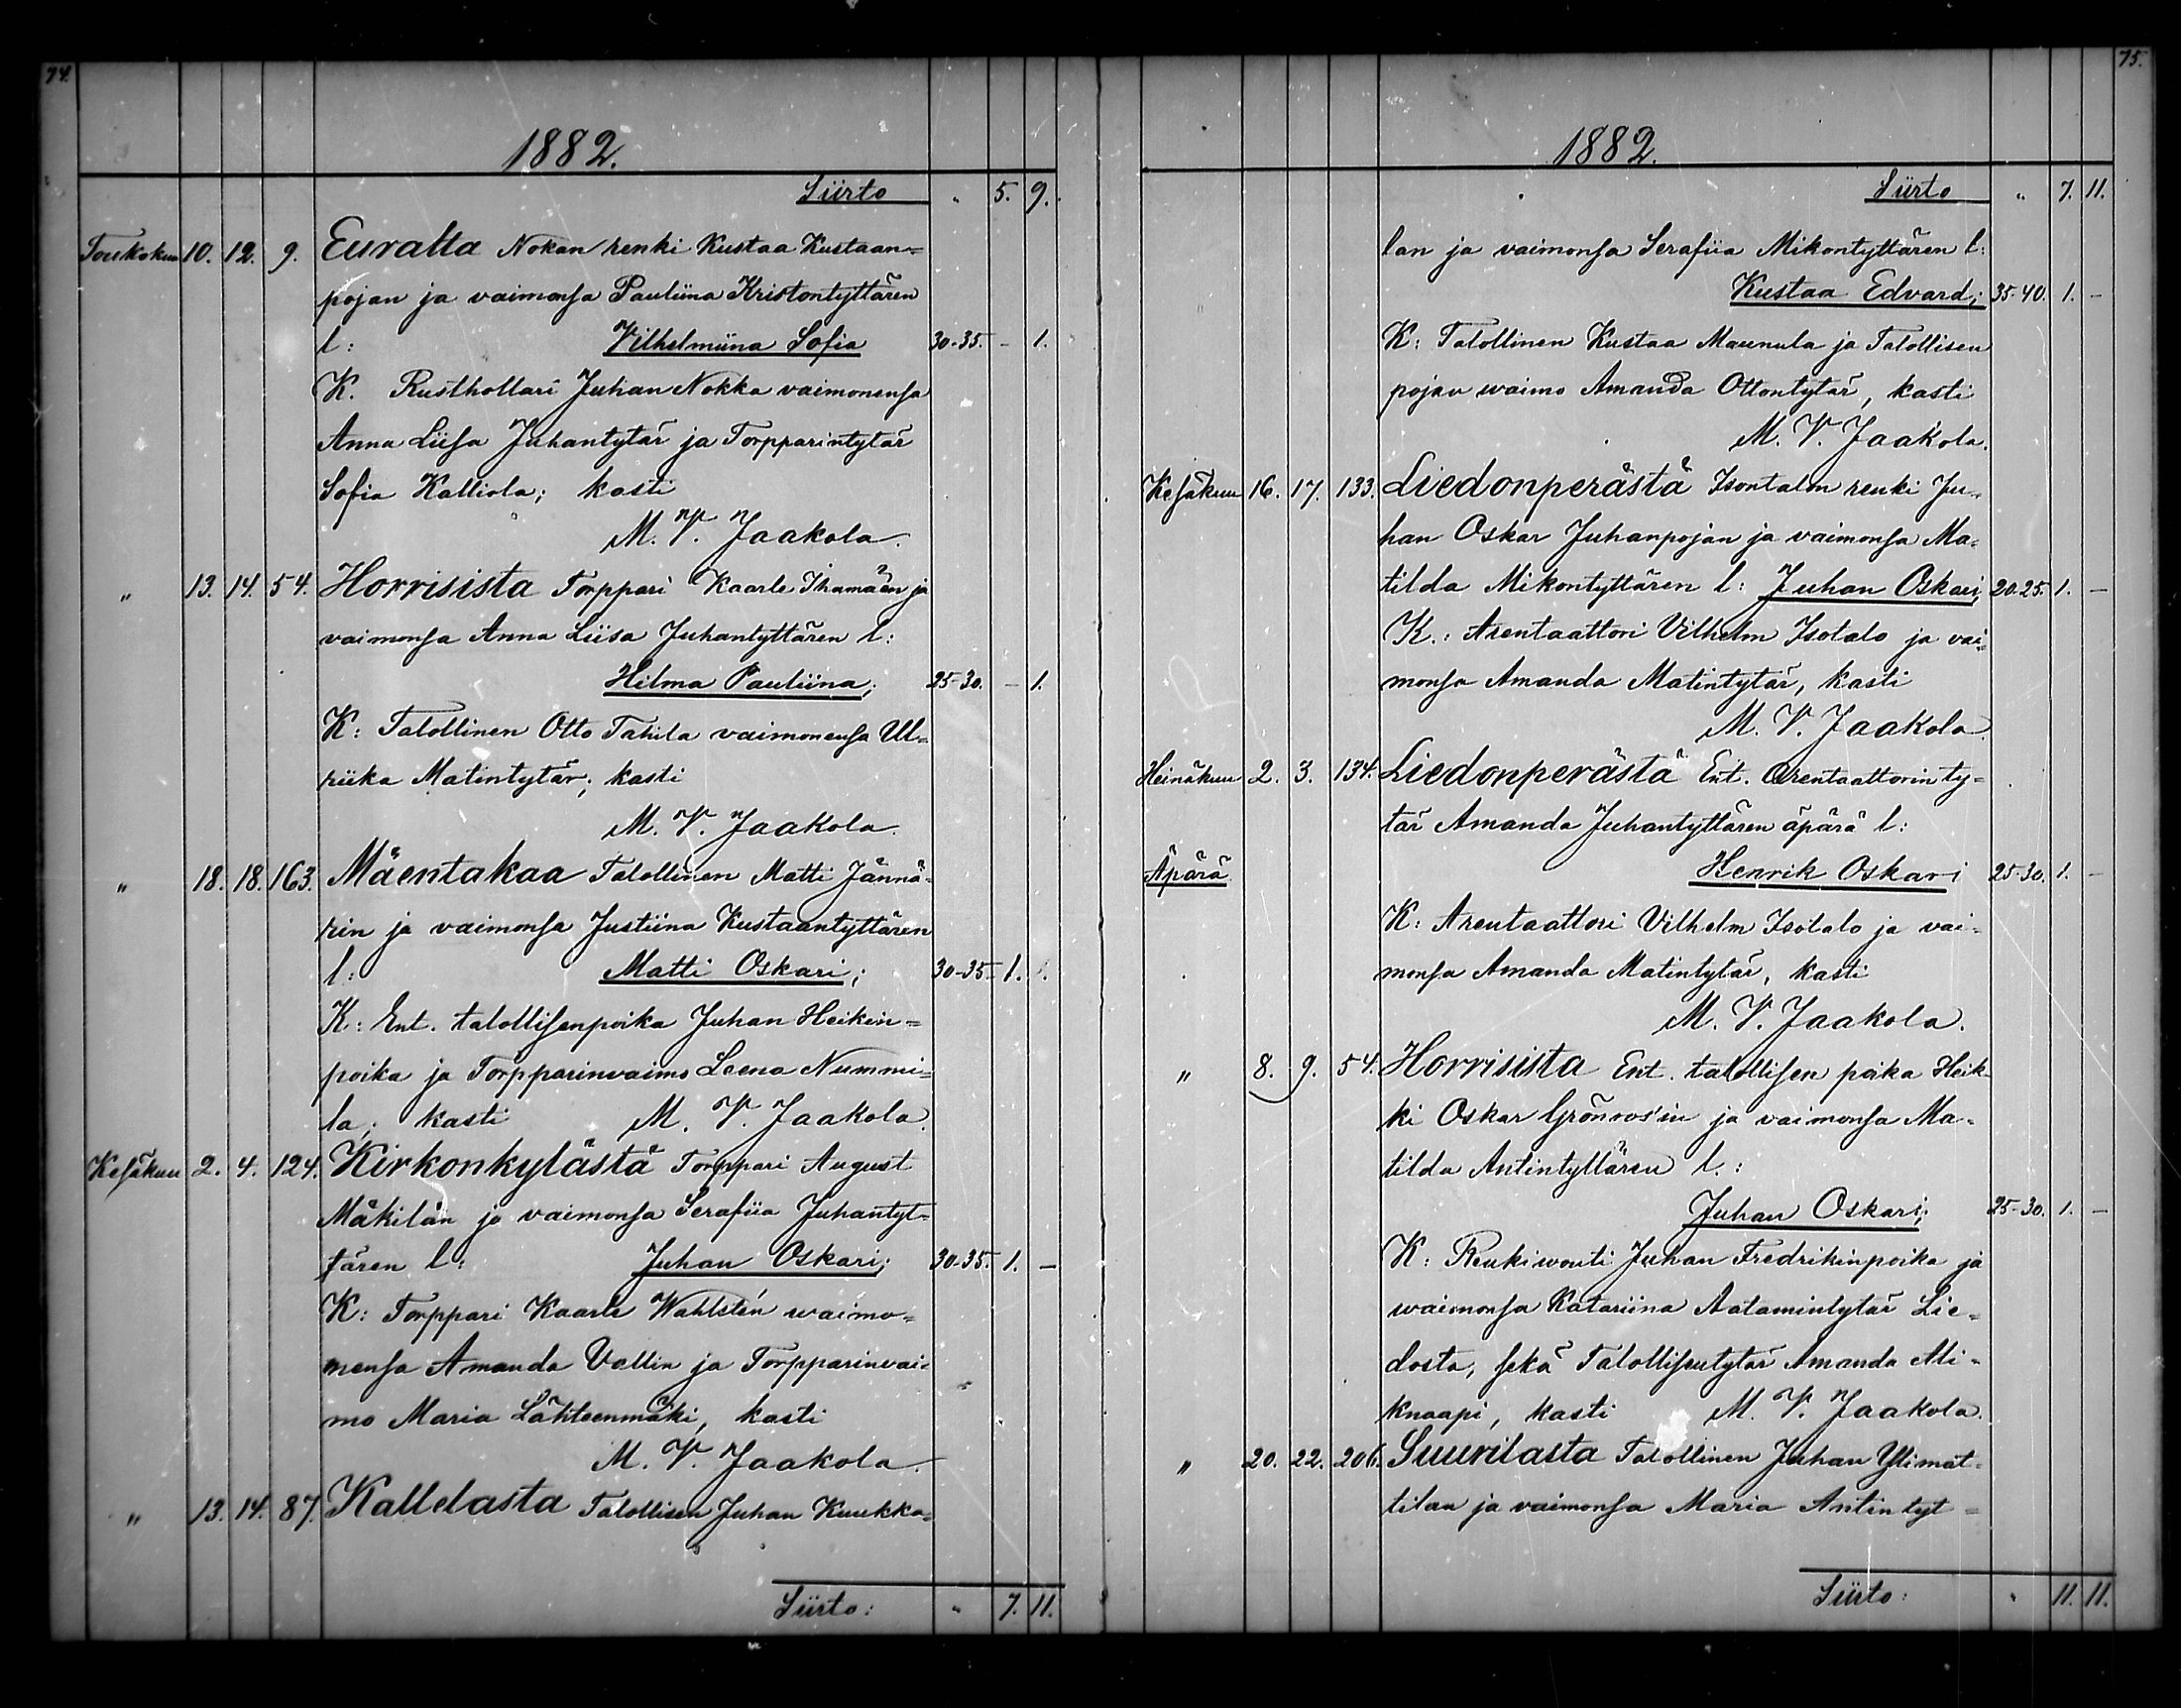 74.
1882.
Siirto " 5. 9.
Toukokuu 10. 12. 9. Euralta Nokan renki Kustaa Kustaan=
pojan ja vaimonsa Pauliina Kristontyttären
l: Vilhelmiina Sofia 30-35. - 1.
K. Rusthollari Juhan Nokka vaimonensa
Anna Liisa Juhantytär ja Torpparintytär
Sofia Kalliola; kasti
M. V. Jaakola.
" 13. 14. 54. Horrisista Torppari Kaarle Ihamäen ja
vaimonsa Anna Liisa Juhantyttären l:
Hilma Pauliina; 25-30. - 1.
K: Talollinen Otto Tahila vaimonensa Ul=
riika Matintytär; kasti
M. V. Jaakola.
" 18. 18. 163. Mäentakaa Talollinen Matti Jännä=
rin ja vaimonsa Justiina Kustaantyttären
l: Matti Oskari; 30-35. 1.
K: Ent. talollisenpoika Juhan Heikin=
poika ja Torpparinvaimo Leena Nummi=
la; kasti M. V. Jaakola.
Kesäkuu 2. 4. 124. Kirkonkylästä Torppari August
Mäkilän ja vaimonsa Serafiia Juhantyt=
tären l: Juhan Oskari; 30-35. 1. -
K: Torppari Kaarle Wahlstén waimo=
nensa Amanda Vallin ja Torpparinvai=
mo Maria Lähteenmäki, kasti
M. V. Jaakola.
" 13. 14. 87. Kallelasta Talollisen Juhan Kuukka=
Siirto: " 7. 11.
75.
1882.
Siirto " 7. 11.
lan ja vaimonsa Serafiia Mikontyttären l:
Kustaa Edvard; 35-40. 1. -
K: Talollinen Kustaa Maunula ja Talollisen
pojan waimo Amanda Ottontytär, kasti
M. V. Jaakola.
Kesäkuu 16. 17. 133. Liedonperästä Isontalon renki Ju=
han Oskar Juhanpojan ja vaimonsa Ma=
tilda Mikontyttären l: Juhan Oskari; 20-25. 1. -
K.: Arentaattori Vilhelm Isotalo ja vai=
monsa Amanda Matintytär, kasti
M. V. Jaakola.
Heinäkuu 2. 3. 134. Liedonperästä Ent. Arentaattorinty=
tär Amanda Juhantyttären äpärä l:
Äpärä. Henrik Oskari 25-30. 1. -
K: Arentaattori Vilhelm Isotalo ja vai=
monsa Amanda Matintytär, kasti
M. V. Jaakola.
" 8. 9. 54. Horrisista Ent. talollisen poika Heik=
ki Oskar Grönroos'in ja vaimonsa Ma=
tilda Antintyttären l.:
Juhan Oskari; 25-30. 1. -
K: Renkiwouti Juhan Fredrikinpoika ja
waimonsa Katariina Aatamintytär Lie=
dosta, sekä Talollisentytär Amanda Ali=
knaapi, kasti M. V. Jaakola.
" 20. 22. 206. Suurilasta Talollinen Juhan Ylimat=
tilan ja vaimonsa Maria Antintyt=
Siirto: " 11. 11.